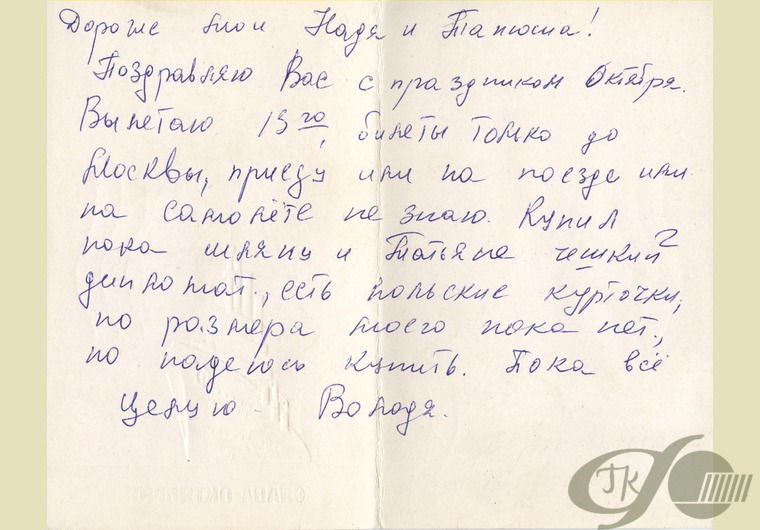 Дорогие мои Надя и Танюша!
Поздравляю Вас с праздником Октября.
Вылетаю 13го, билеты только до
Москвы, приеду или на поезде или
на самолёте не знаю. Купил
пока шляпу и Татьяне чешский
дипломат., есть польские курточки,
но размера твоего пока нет.,
но надеюсь купить. Пока всё
Целую – Володя.
СЛАВА ОКТЯБРЮ
ГК